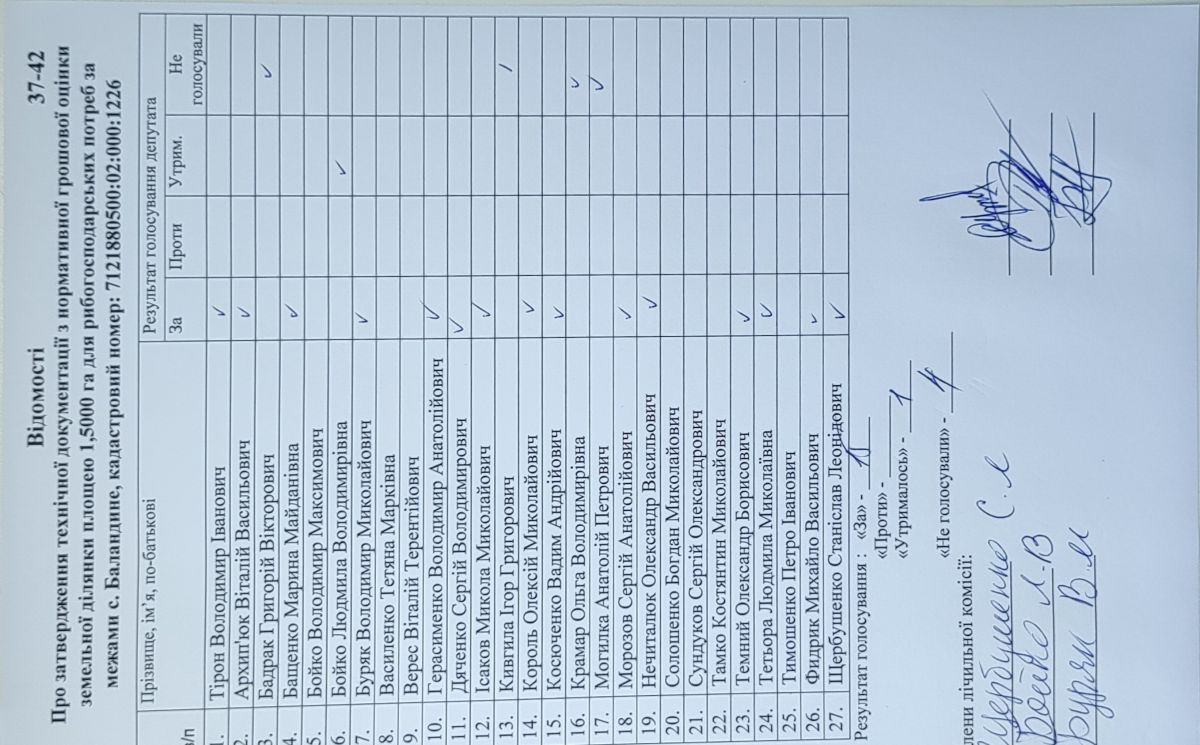 Відомості 37-42
Про затвердження технічної документації з нормативної грошової оцінки
земельної ділянки площею 1,5000 га для рибогосподарських потреб за
межами с. Баландине, кадастровий номер: 7121880500:02:000:1226
з/п Прізвище, ім`я, по-батькові Результат голосування депутата
За Проти Утрим. Не голосували
1. Тірон Володимир Іванович ✓
2. Архип'юк Віталій Васильович ✓
3. Бадрак Григорій Вікторович ✓
4. Бащенко Марина Майданівна ✓
5. Бойко Володимир Максимович
6. Бойко Людмила Володимирівна ✓
7. Буряк Володимир Миколайович ✓
8. Василенко Тетяна Марківна
9. Верес Віталій Терентійович
10. Герасименко Володимир Анатолійович ✓
11. Дяченко Сергій Володимирович ✓
12. Ісаков Микола Миколайович ✓
13. Кивгила Ігор Григорович
14. Король Олексій Миколайович ✓
15. Косюченко Вадим Андрійович ✓
16. Крамар Ольга Володимирівна ✓
17. Могилка Анатолій Петрович ✓
18. Морозов Сергій Анатолійович ✓
19. Нечиталюк Олександр Васильович ✓
20. Солошенко Богдан Миколайович
21. Сундуков Сергій Олександрович
22. Тамко Костянтин Миколайович
23. Темний Олександр Борисович ✓
24. Тетьора Людмила Миколаївна ✓
25. Тимошенко Петро Іванович
26. Фидрик Михайло Васильович ✓
27. Щербушенко Станіслав Леонідович ✓
Результат голосування : «За» -
«Проти» -
«Утрималось» - 1
«Не голосували» - 4
лени лічильної комісії:
Щербушенко С.Л
Бойко Л.В
Буряк В.М